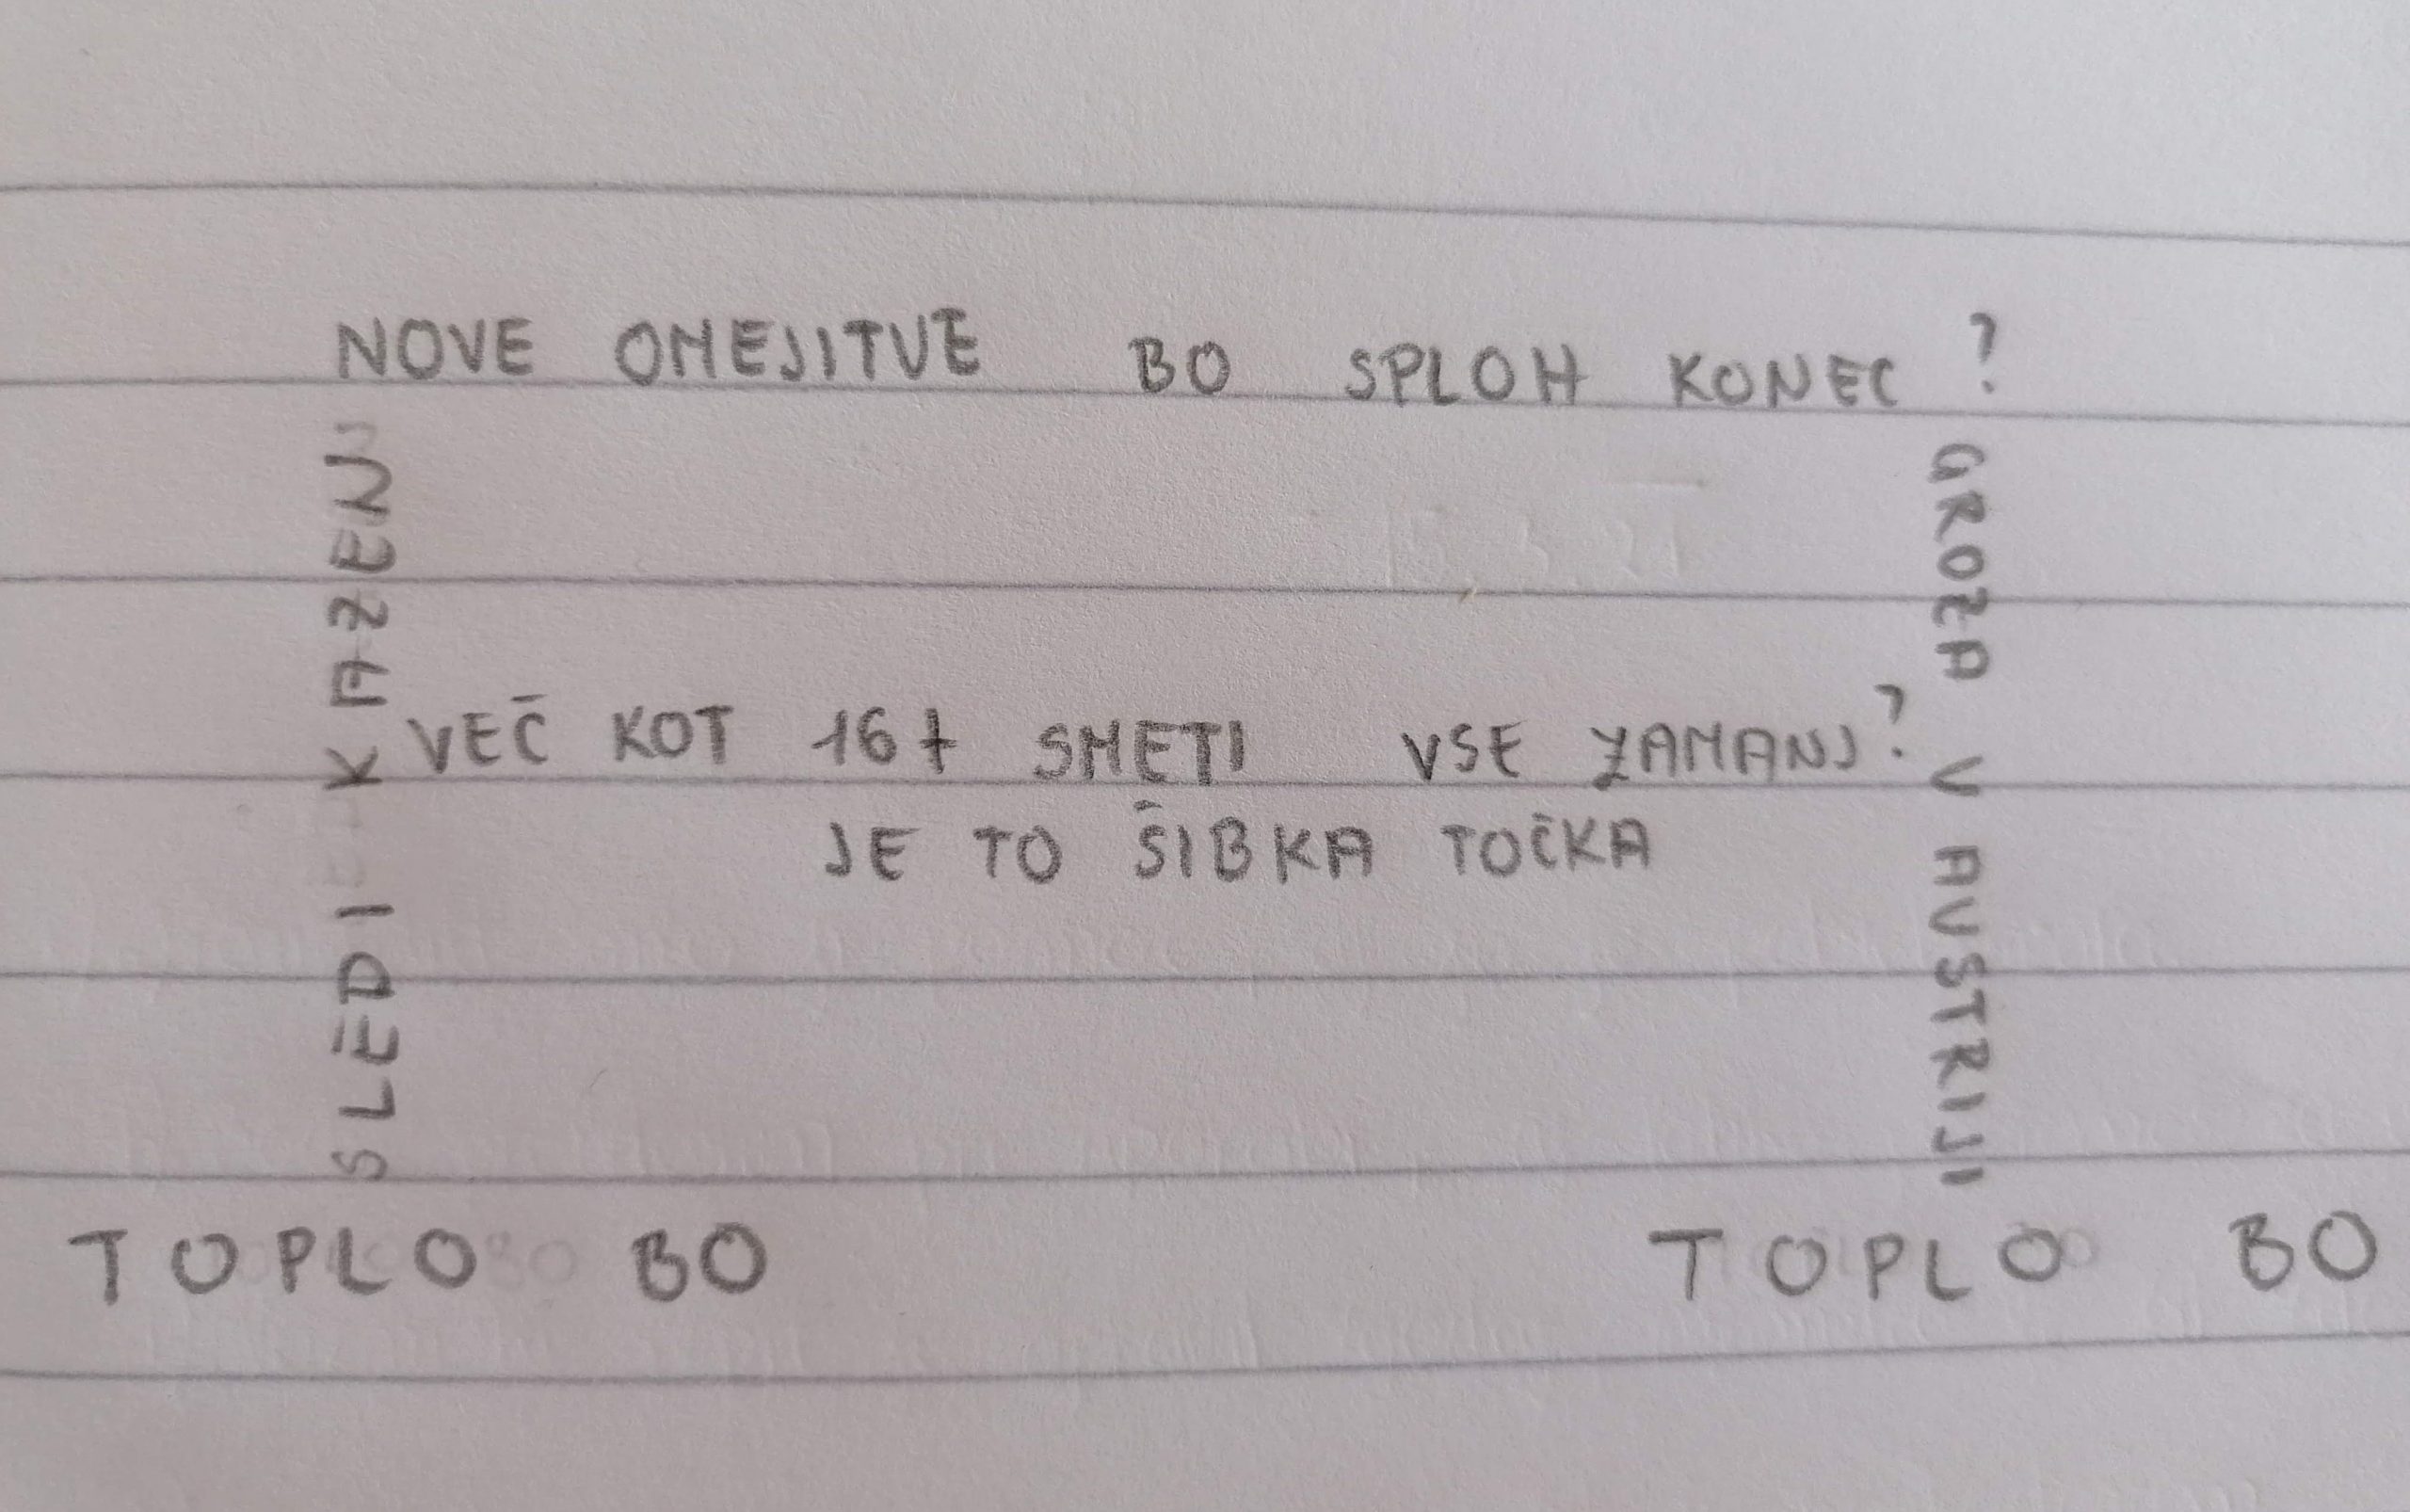 NOVE OMEJITVE BO SPLOH KONEC ?
SLEDI KAZEN
GROZA V AVSTRIJI
VEČ KOT 16t SMETI VSE ZAMANJ?
JE TO ŠIBKA TOČKA
TOPLO BO TOPLO BO